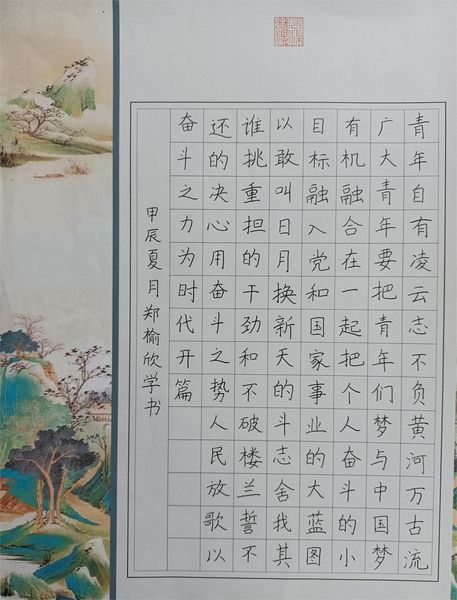 青年自有凌云志不负黄河万古流
广大青年要把青年们梦与中国梦
有机融合在一起把个人奋斗的小
目标融入党和国家事业的大蓝图
以敢叫日月换新天的斗志舍我其
谁挑重担的干劲和不破楼兰誓不
还的决心用奋斗之势人民放歌以
奋斗之力为时代开篇
甲辰夏月郑榆欣学书